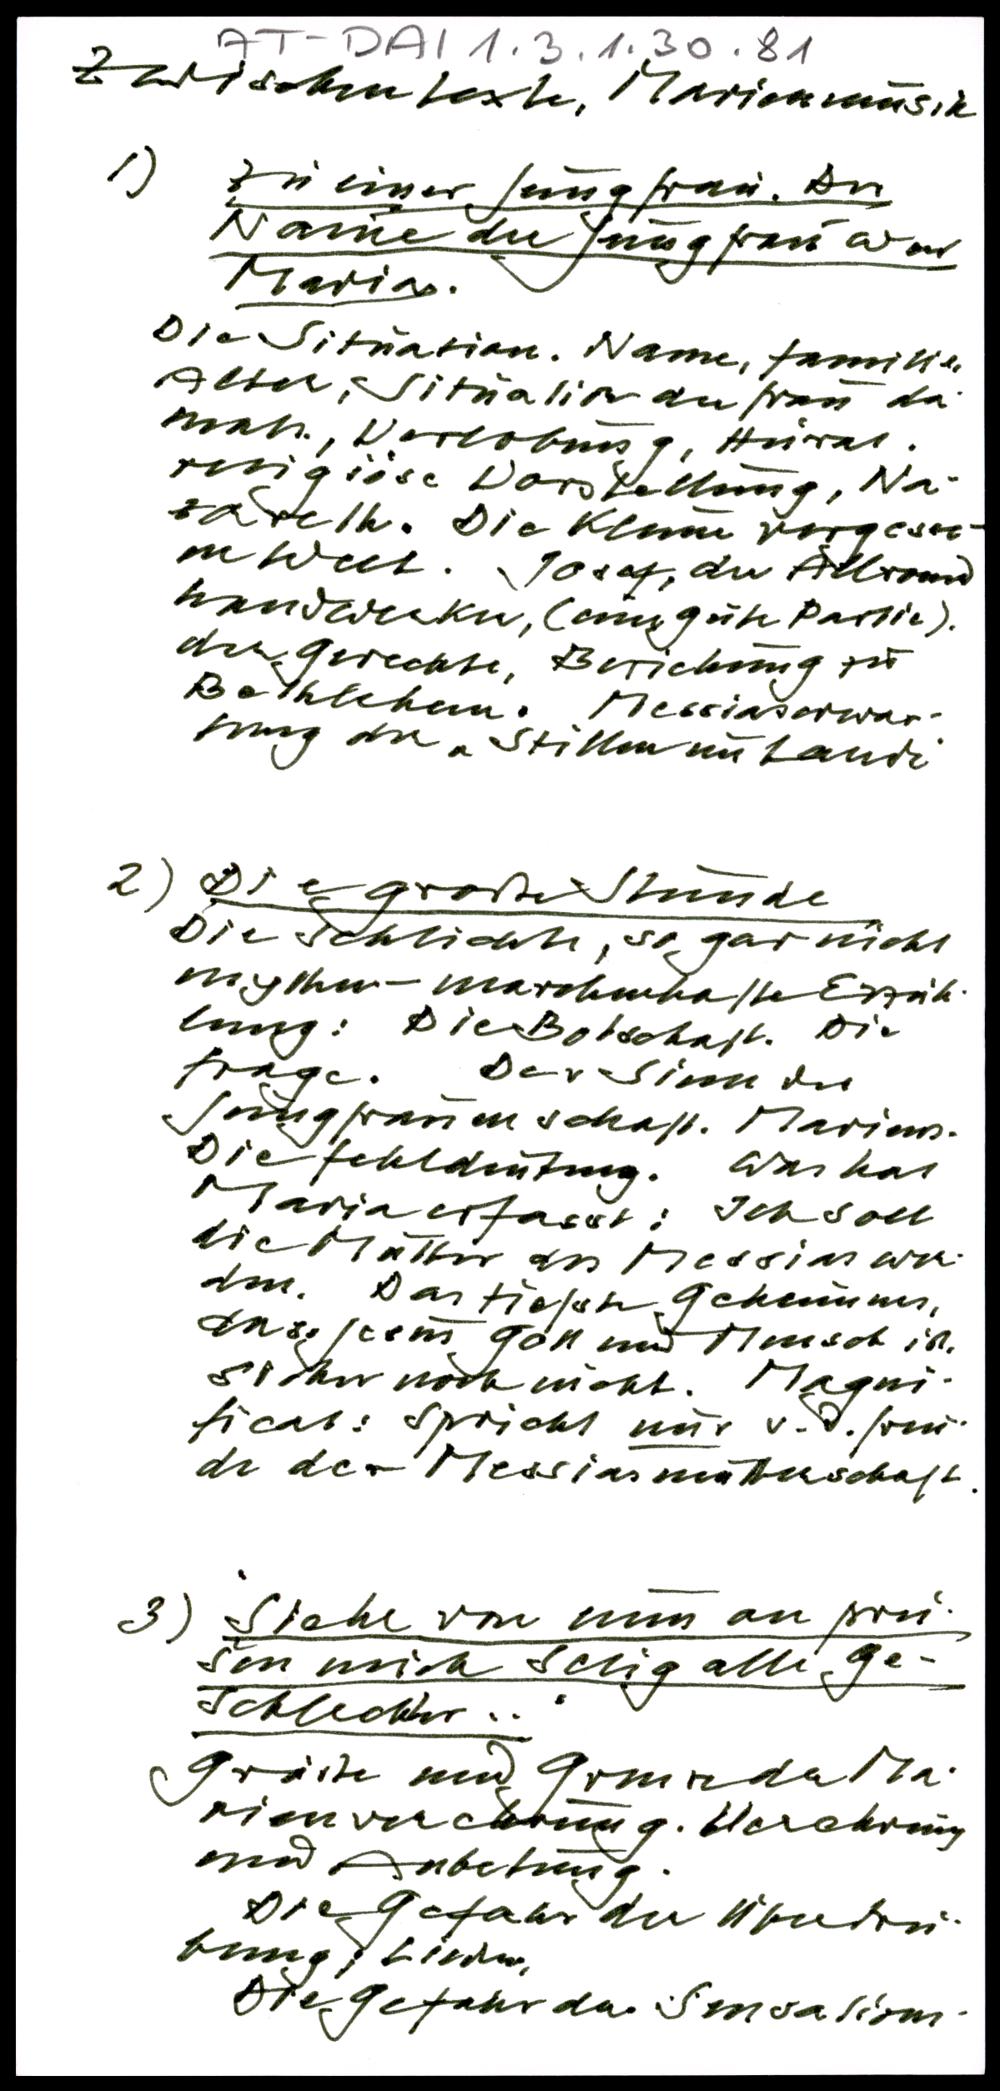 AT-DAI 1.3.1.30.81
Zwischentexte, Marienmusik
1) Zu einer Jungfrau. Der
Name der Jungfrau war
Maria.
Die Situation. Name, Familie,
Alter, Situation der Frau da-
mals, Verlobung, Heirat.
religiöse Vorstellung, Na-
zareth. Die kleine vergesse-
ne Welt. Josef, der Allround
handwerker, (eine gute Partie).
der Gerechte, Beziehung zu
Bethlehem. Messiaserwar-
tung der "Stillen im Lande
2) Die große Stunde
Die schlichte, so gar nicht
mythen-märchenhafte Erzäh-
lung: Die Botschaft. Die
Frage. Der Sinn der
Jungfrauenschaft Mariens.
Die Fehldeutung. Was hat
Maria erfasst: Ich soll
die Mutter des Messias wer-
den. Das tiefste Geheimnis,
dass Jesus Gott und Mensch ist,
sicher noch nicht. Magni-
ficat: spricht nur v. d. Freu-
de der Messiasmutterschaft.
3) Siehe von nun an prei-
sen mich selig alle Ge-
schlechter..
Größe und Grenze der Ma-
rienverehrung. Verehrung
und Anbetung.
Die Gefahr der Übertrei-
bung, Lieder,
Die Gefahr der Sensations-